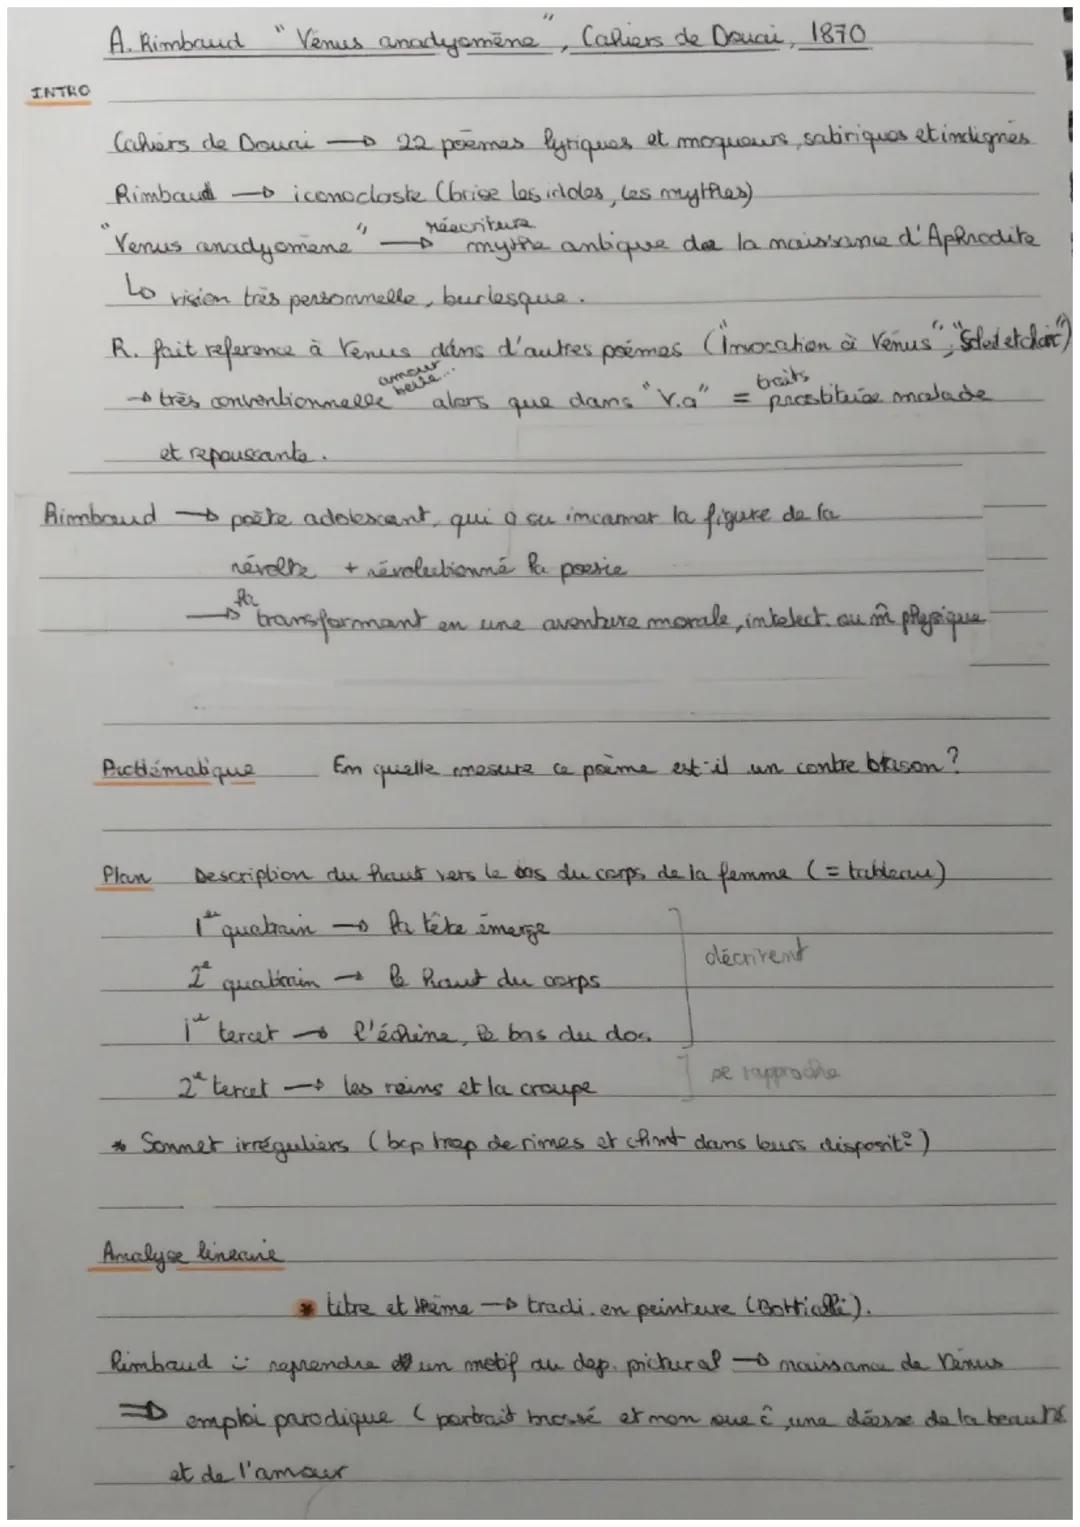 A. Rimbaud "Vénus anadyomène", Cahiers de Douai, 1870
INTRO
Cahiers de Douai → 22 poèmes lyriques et moqueurs, satiriques et indignés
Rimbaud → iconoclaste (brise les idoles, les mythes)
"Venus anadyomène" → réécriture mythe antique de la naissance d'Aphrodite
↳ vision très personnelle, burlesque.
R. fait reference à Venus dans d'autres poèmes ("Invocation à Vénus", "Soleil et chair")
→ très conventionnelle amour beauté... alors que dans "V.a" = traits prostituée malade
et repoussante.
Rimbaud → poète adolescent, qui a su incarner la figure de la
révolte + révolutionné la poésie
→ la transformant en une aventure morale, intelect. ou m̂ physique
Problématique En quelle mesure ce poème est-il un contre blason ?
Plan Description du haut vers le bas du corps de la femme (= tableau)
1er quatrain → la tête émerge
2e quatrain → le haut du corps
décrivent
1er tercet → l'échine, le bas du dos
2e tercet → les reins et la croupe
se rapproche
* Sonnet irréguliers (bcp trop de rimes et chgmt dans leurs disposit°)
Analyse lineaire
* titre et thème → tradi. en peinture (Botticelli).
Rimbaud : reprendre un motif au dep. pictural → naissance de Vénus
⇒ emploi parodique (portrait brossé et non vue ĉ une déesse de la beauté
et de l'amour